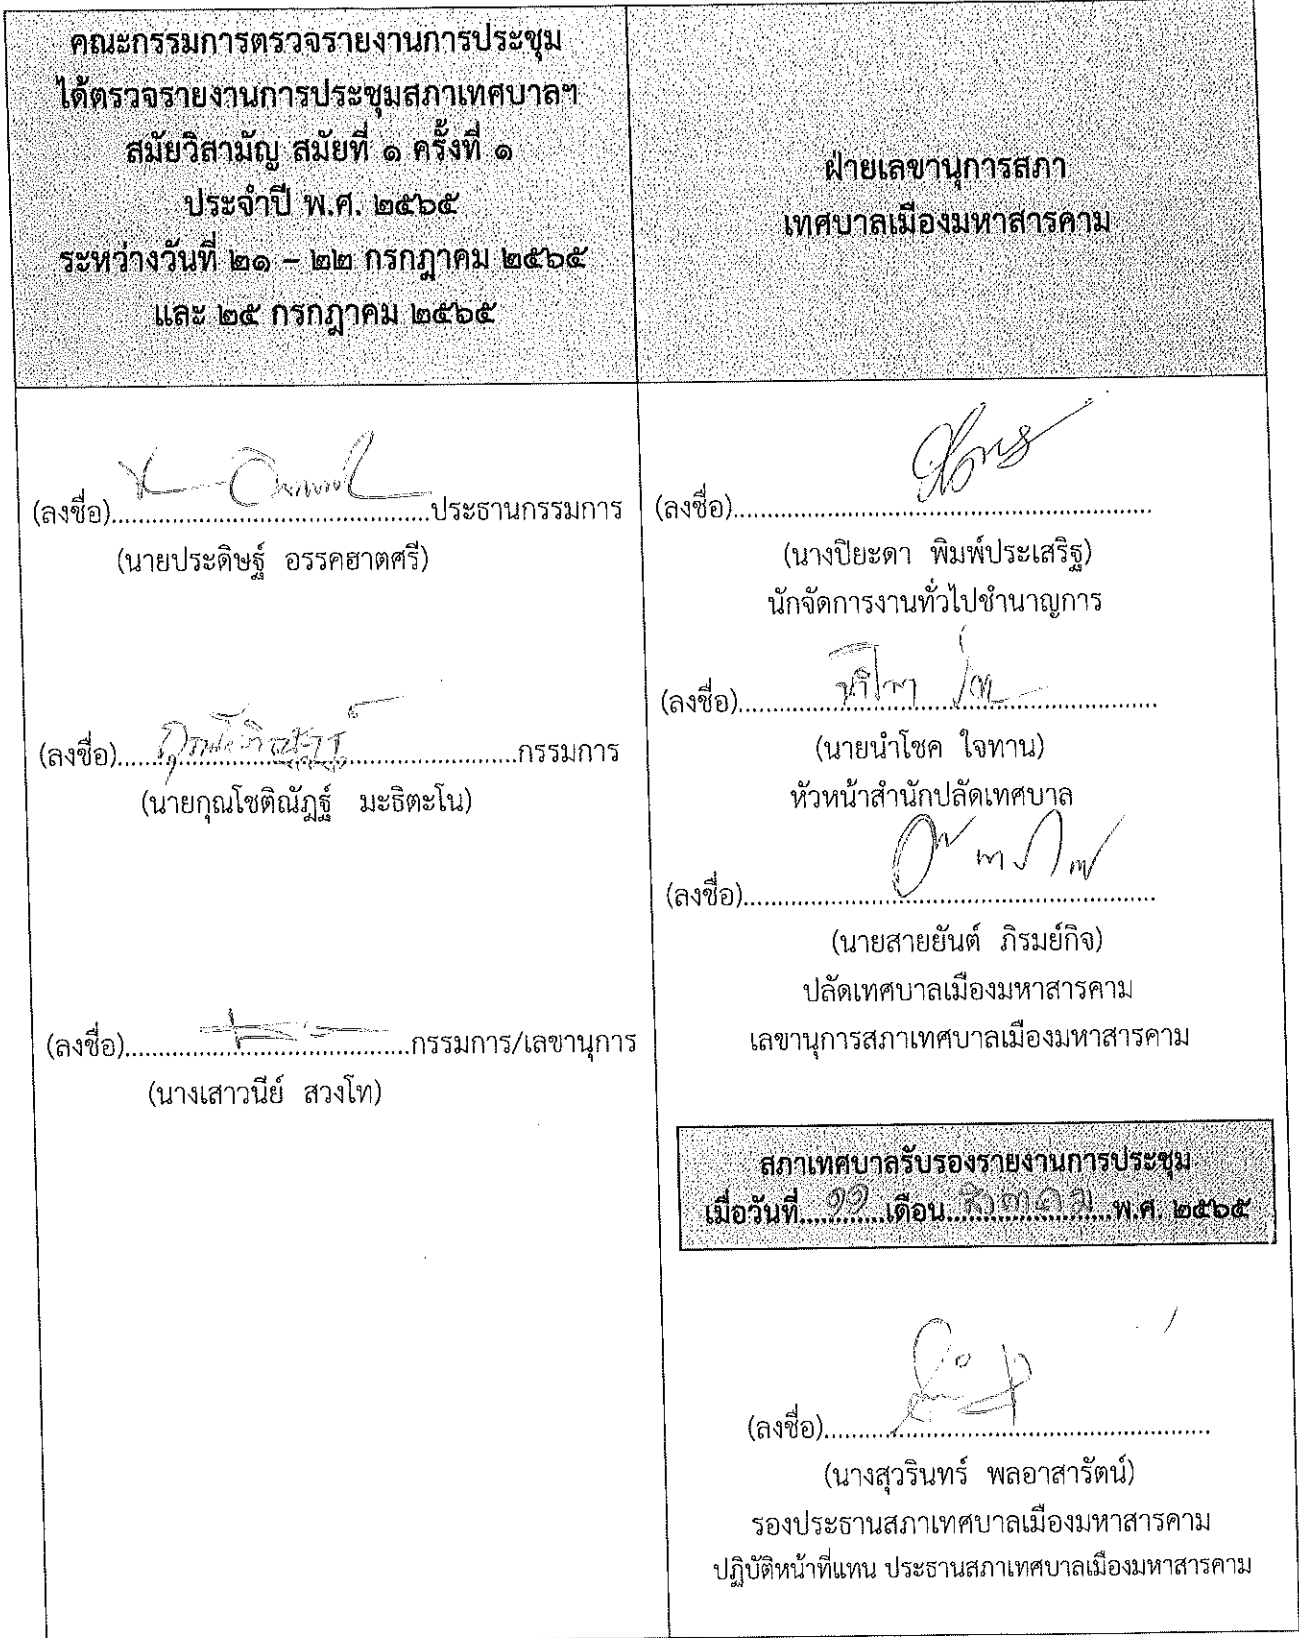 คณะกรรมการตรวจรายงานการประชุม
ได้ตรวจรายงานการประชุมสภาเทศบาลฯ
สมัยวิสามัญ สมัยที่ ๑ ครั้งที่ ๑
ประจำปี พ.ศ. ๒๕๖๕
ระหว่างวันที่ ๒๑ – ๒๒ กรกฎาคม ๒๕๖๕
และ ๒๕ กรกฎาคม ๒๕๖๕
(ลงชื่อ)...............................................ประธานกรรมการ
(นายประดิษฐ์ อรรคฮาตศรี)
(ลงชื่อ)...........................................................กรรมการ
(นายกุณโชติณัฏฐ์ มะธิตะโน)
(ลงชื่อ)..........................................กรรมการ/เลขานุการ
(นางเสาวนีย์ สวงโท)
ฝ่ายเลขานุการสภา
เทศบาลเมืองมหาสารคาม
(ลงชื่อ)..............................................................
(นางปิยะดา พิมพ์ประเสริฐ)
นักจัดการงานทั่วไปชำนาญการ
(ลงชื่อ)..............................................................
(นายนำโชค ใจทาน)
หัวหน้าสำนักปลัดเทศบาล
(ลงชื่อ).............................................................
(นายสายยันต์ ภิรมย์กิจ)
ปลัดเทศบาลเมืองมหาสารคาม
เลขานุการสภาเทศบาลเมืองมหาสารคาม
สภาเทศบาลรับรองรายงานการประชุม
เมื่อวันที่............เดือน สิงหาคม พ.ศ. ๒๕๖๕
(ลงชื่อ).........................................................
(นางสุวรินทร์ พลอาสารัตน์)
รองประธานสภาเทศบาลเมืองมหาสารคาม
ปฏิบัติหน้าที่แทน ประธานสภาเทศบาลเมืองมหาสารคาม